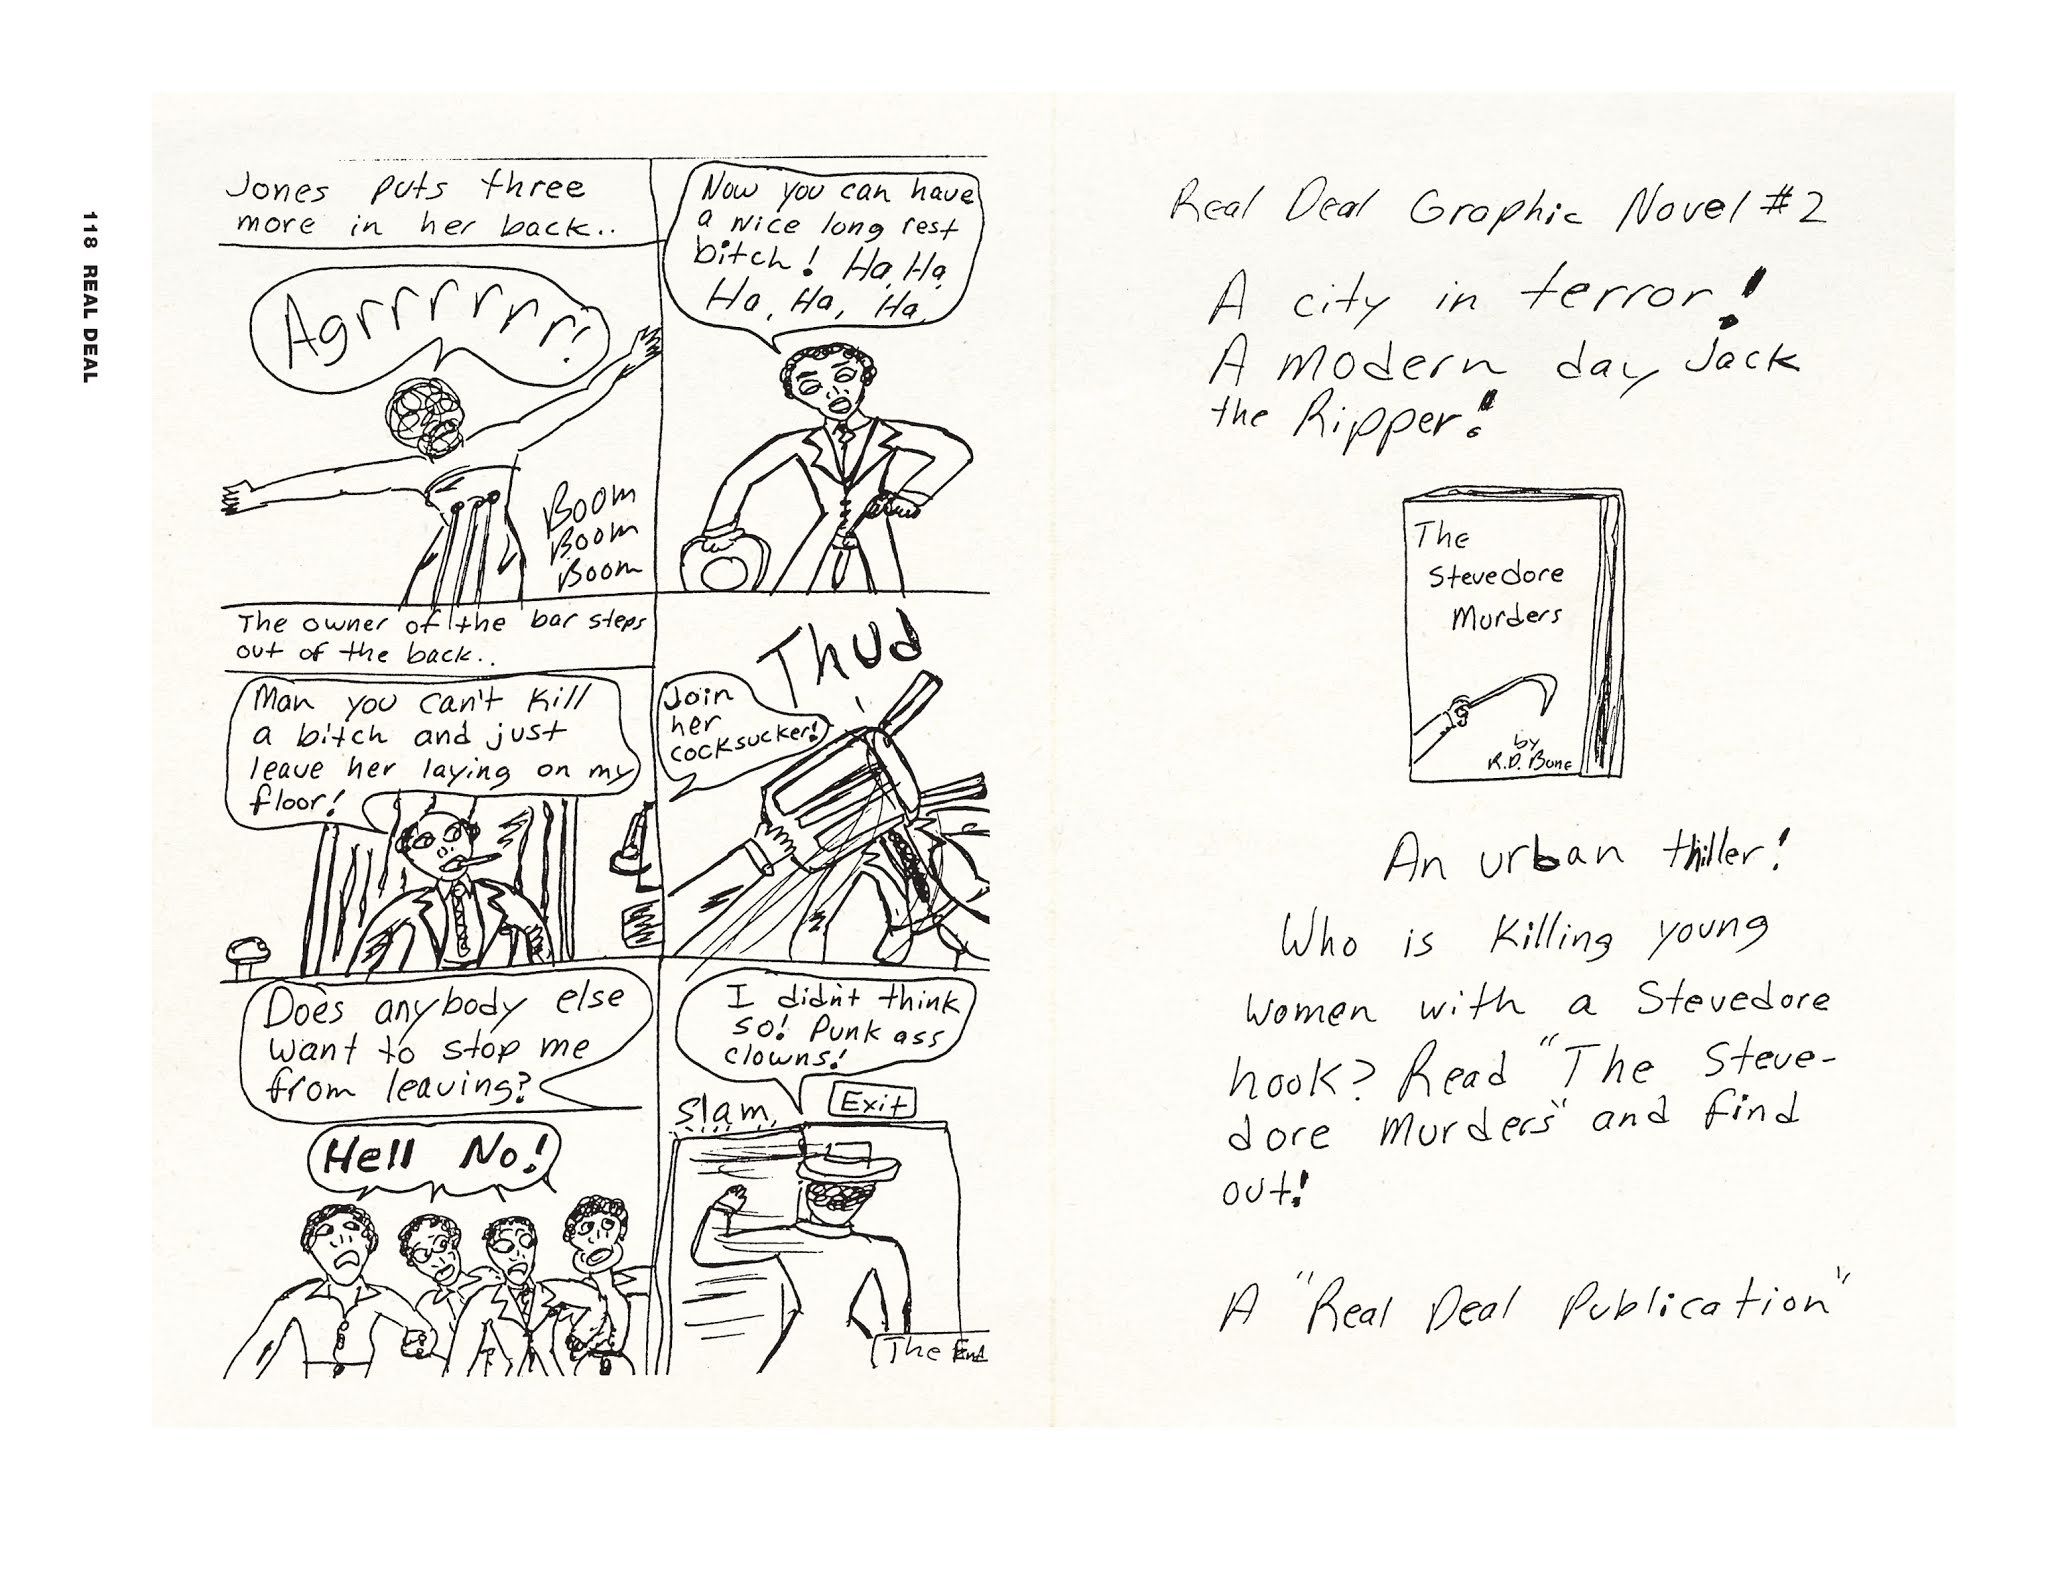 118 REAL DEAL
Jones puts three
more in her back..
Agrrrrrr!
Boom
Boom
Boom
Now you can have
a nice long rest
bitch! Ha, Ha,
Ha, Ha, Ha
The owner of the bar steps
out of the back..
Man you can't kill
a bitch and just
leave her laying on my
floor!
Thud
Join
her
cocksucker!
Does anybody else
want to stop me
from leaving?
Hell No!
I didn't think
so! Punk ass
clowns!
Slam
Exit
The End
Real Deal Graphic Novel #2
A city in terror!
A modern day Jack
the Ripper!
The
Stevedore
Murders
by
R.D. Bone
An urban thiller!
Who is killing young
women with a Stevedore
hook? Read "The Steve-
dore Murders" and find
out!
A "Real Deal Publication"